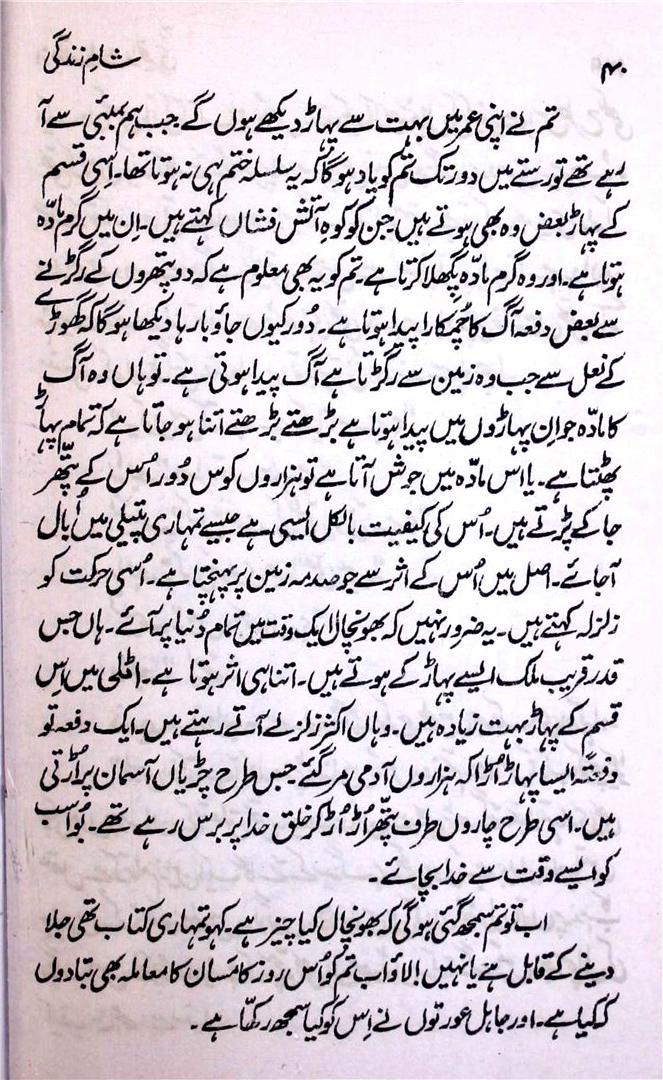 ۴۰ شامِ زندگی
تم نے اپنی عمر میں بہت سے پہاڑ دیکھے ہوں گے جب ہم بمبئی سے آ
رہے تھے تو رستے میں دور تک تم کو یاد ہوگا کہ یہ سلسلہ ختم ہی نہ ہوتا تھا۔ اِسی قسم
کے پہاڑ بعض وہ بھی ہوتے ہیں جن کو کوہِ آتش فشاں کہتے ہیں۔ اِن میں گرم مادّہ
ہوتا ہے۔ اور وہ گرم مادّہ پگھلا کرتا ہے۔ تم کو یہ بھی معلوم ہے کہ دو پتھروں کے رگڑنے
سے بعض دفعہ آگ کا چُمکارا پیدا ہوتا ہے۔ دُور کیوں جاؤ بارہا دیکھا ہوگا کہ گھوڑے
کے نعل سے جب وہ زمین سے رگڑتا ہے آگ پیدا ہوتی ہے۔ تو ہاں وہ آگ
کا مادّہ جو اِن پہاڑوں میں پیدا ہوتا ہے بڑھتے بڑھتے اتنا ہو جاتا ہے کہ تمام پہاڑ
پھٹتا ہے۔ یا اس مادّہ میں جوش آتا ہے تو ہزاروں کوس دُور اُس کے پتّھر
جا کے پڑتے ہیں۔ اُس کی کیفیت بالکل ایسی ہے جیسے تمہاری پتیلی میں اُبال
آ جائے۔ اصل میں اُس کے اثر سے جو صدمہ زمین پر پہنچتا ہے۔ اُسی حرکت کو
زلزلہ کہتے ہیں۔ یہ ضرور نہیں کہ بھونچال ایک وقت میں تمام دُنیا پر آئے۔ ہاں جس
قدر قریب ملک ایسے پہاڑ کے ہوتے ہیں۔ اتنا ہی اثر ہوتا ہے۔ اٹلی میں اِس
قسم کے پہاڑ بہت زیادہ ہیں۔ وہاں اکثر زلزلے آتے رہتے ہیں۔ ایک دفعہ تو
دفعتًہ ایسا پہاڑ اُڑا کہ ہزاروں آدمی مر گئے جس طرح چڑیاں آسمان پر اُڑتی
ہیں۔ اسی طرح چاروں طرف پتّھر اُڑ اُڑ کر خلق خدا پر برس رہے تھے۔ بُوا سب
کو ایسے وقت سے خدا بچائے۔
اب تو تم سمجھ گئی ہوگی کہ بھونچال کیا چیز ہے۔ کہو تمہاری کتاب تھی جلا
دینے کے قابل ہے یا نہیں! لاؤ اب تم کو اُس روز کا مَسان کا معاملہ بھی بتا دوں
کہ کیا ہے۔ اور جاہل عورتوں نے اِس کو کیا سمجھ رکھّا ہے۔